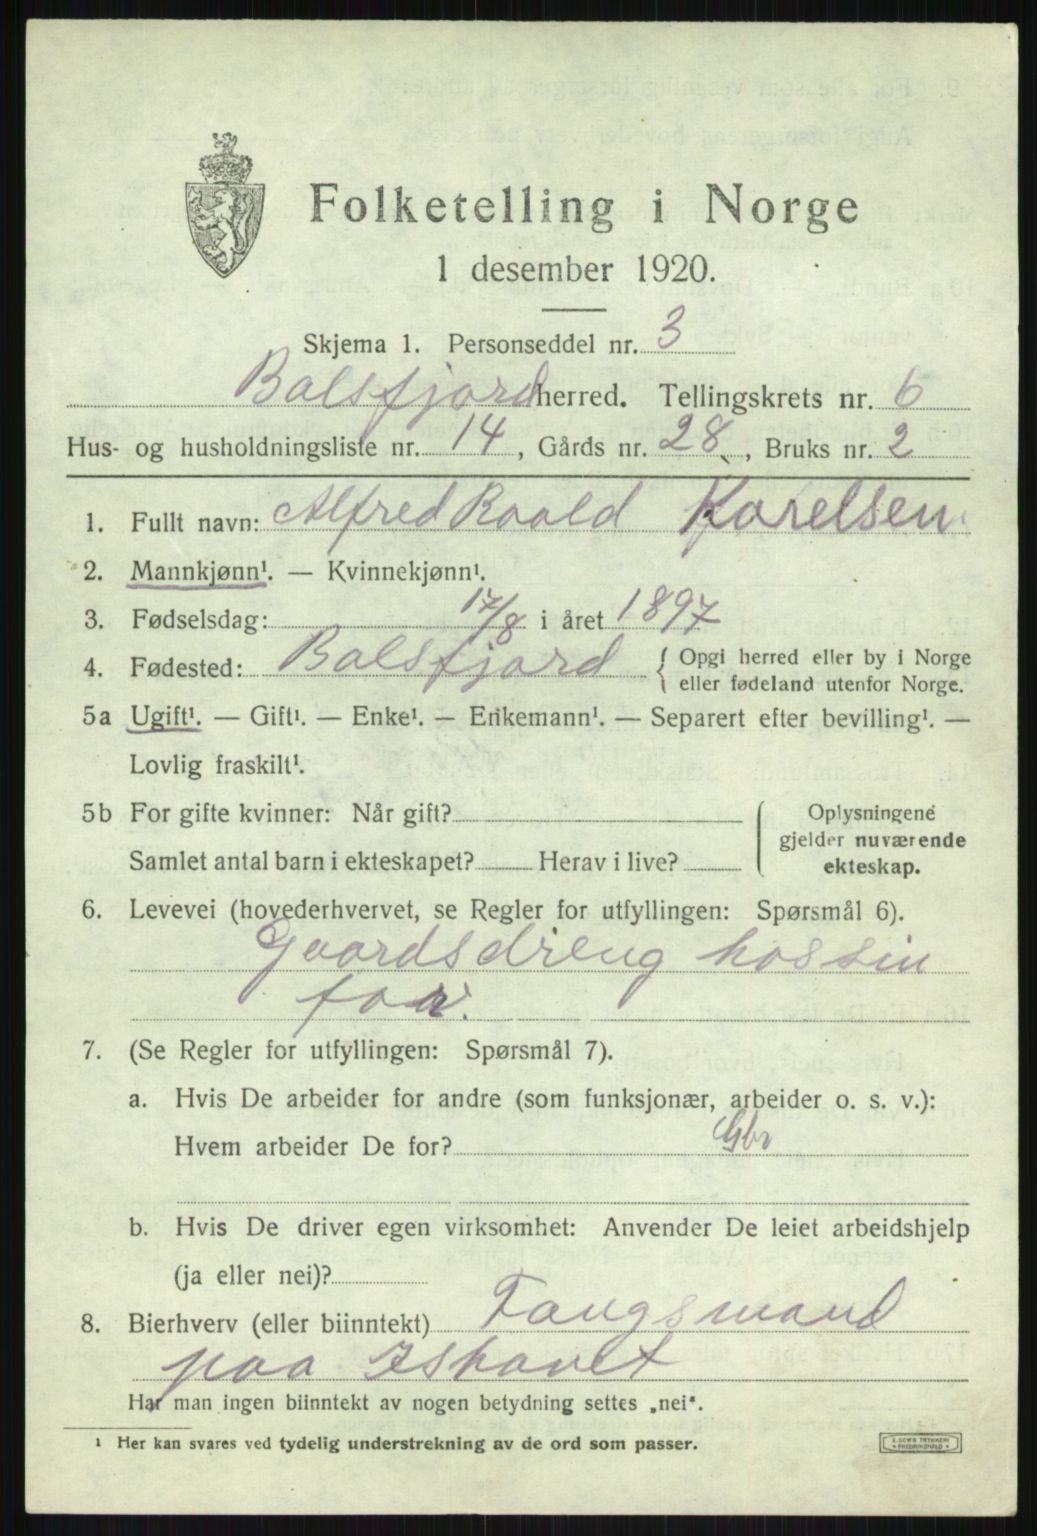 Folketelling i Norge
1 desember 1920.
Skjema 1. Personseddel nr. 3
Balsfjord herred. Tellingskrets nr. 6
Hus- og husholdningsliste nr. 14, Gårds nr. 28, Bruks nr. 2
1. Fullt navn: Alfred Roald Karelsen
2. Mannkjønn¹. — Kvinnekjønn¹.
3. Fødselsdag: 17/8 i året 1897
4. Fødested: Balsfjord { Opgi herred eller by i Norge
eller fødeland utenfor Norge.
5a Ugift¹. — Gift¹. — Enke¹. — Enkemann¹. — Separert efter bevilling¹. —
Lovlig fraskilt¹.
5b For gifte kvinner: Når gift?
Samlet antal barn i ekteskapet? Herav i live?
Oplysningene
gjelder nuværende
ekteskap.
6. Levevei (hovederhvervet, se Regler for utfyllingen: Spørsmål 6).
Gaardsdreng hos sin
far.
7. (Se Regler for utfyllingen: Spørsmål 7).
a. Hvis De arbeider for andre (som funksjonær, arbeider o. s. v.):
Hvem arbeider De for? Gbr
b. Hvis De driver egen virksomhet: Anvender De leiet arbeidshjelp
(ja eller nei)?
8. Bierhverv (eller biinntekt) Fangsmand
paa Ishavet
Har man ingen biinntekt av nogen betydning settes „nei".
¹ Her kan svares ved tydelig understrekning av de ord som passer.